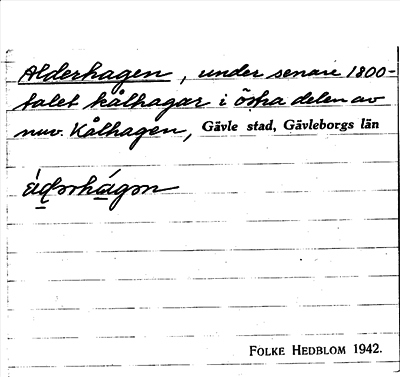 Alderhagen, under senare 1800-
talet kålhagar i östra delen av
nuv. Kålhagen, Gävle stad, Gävleborgs län
FOLKE HEDBLOM 1942.